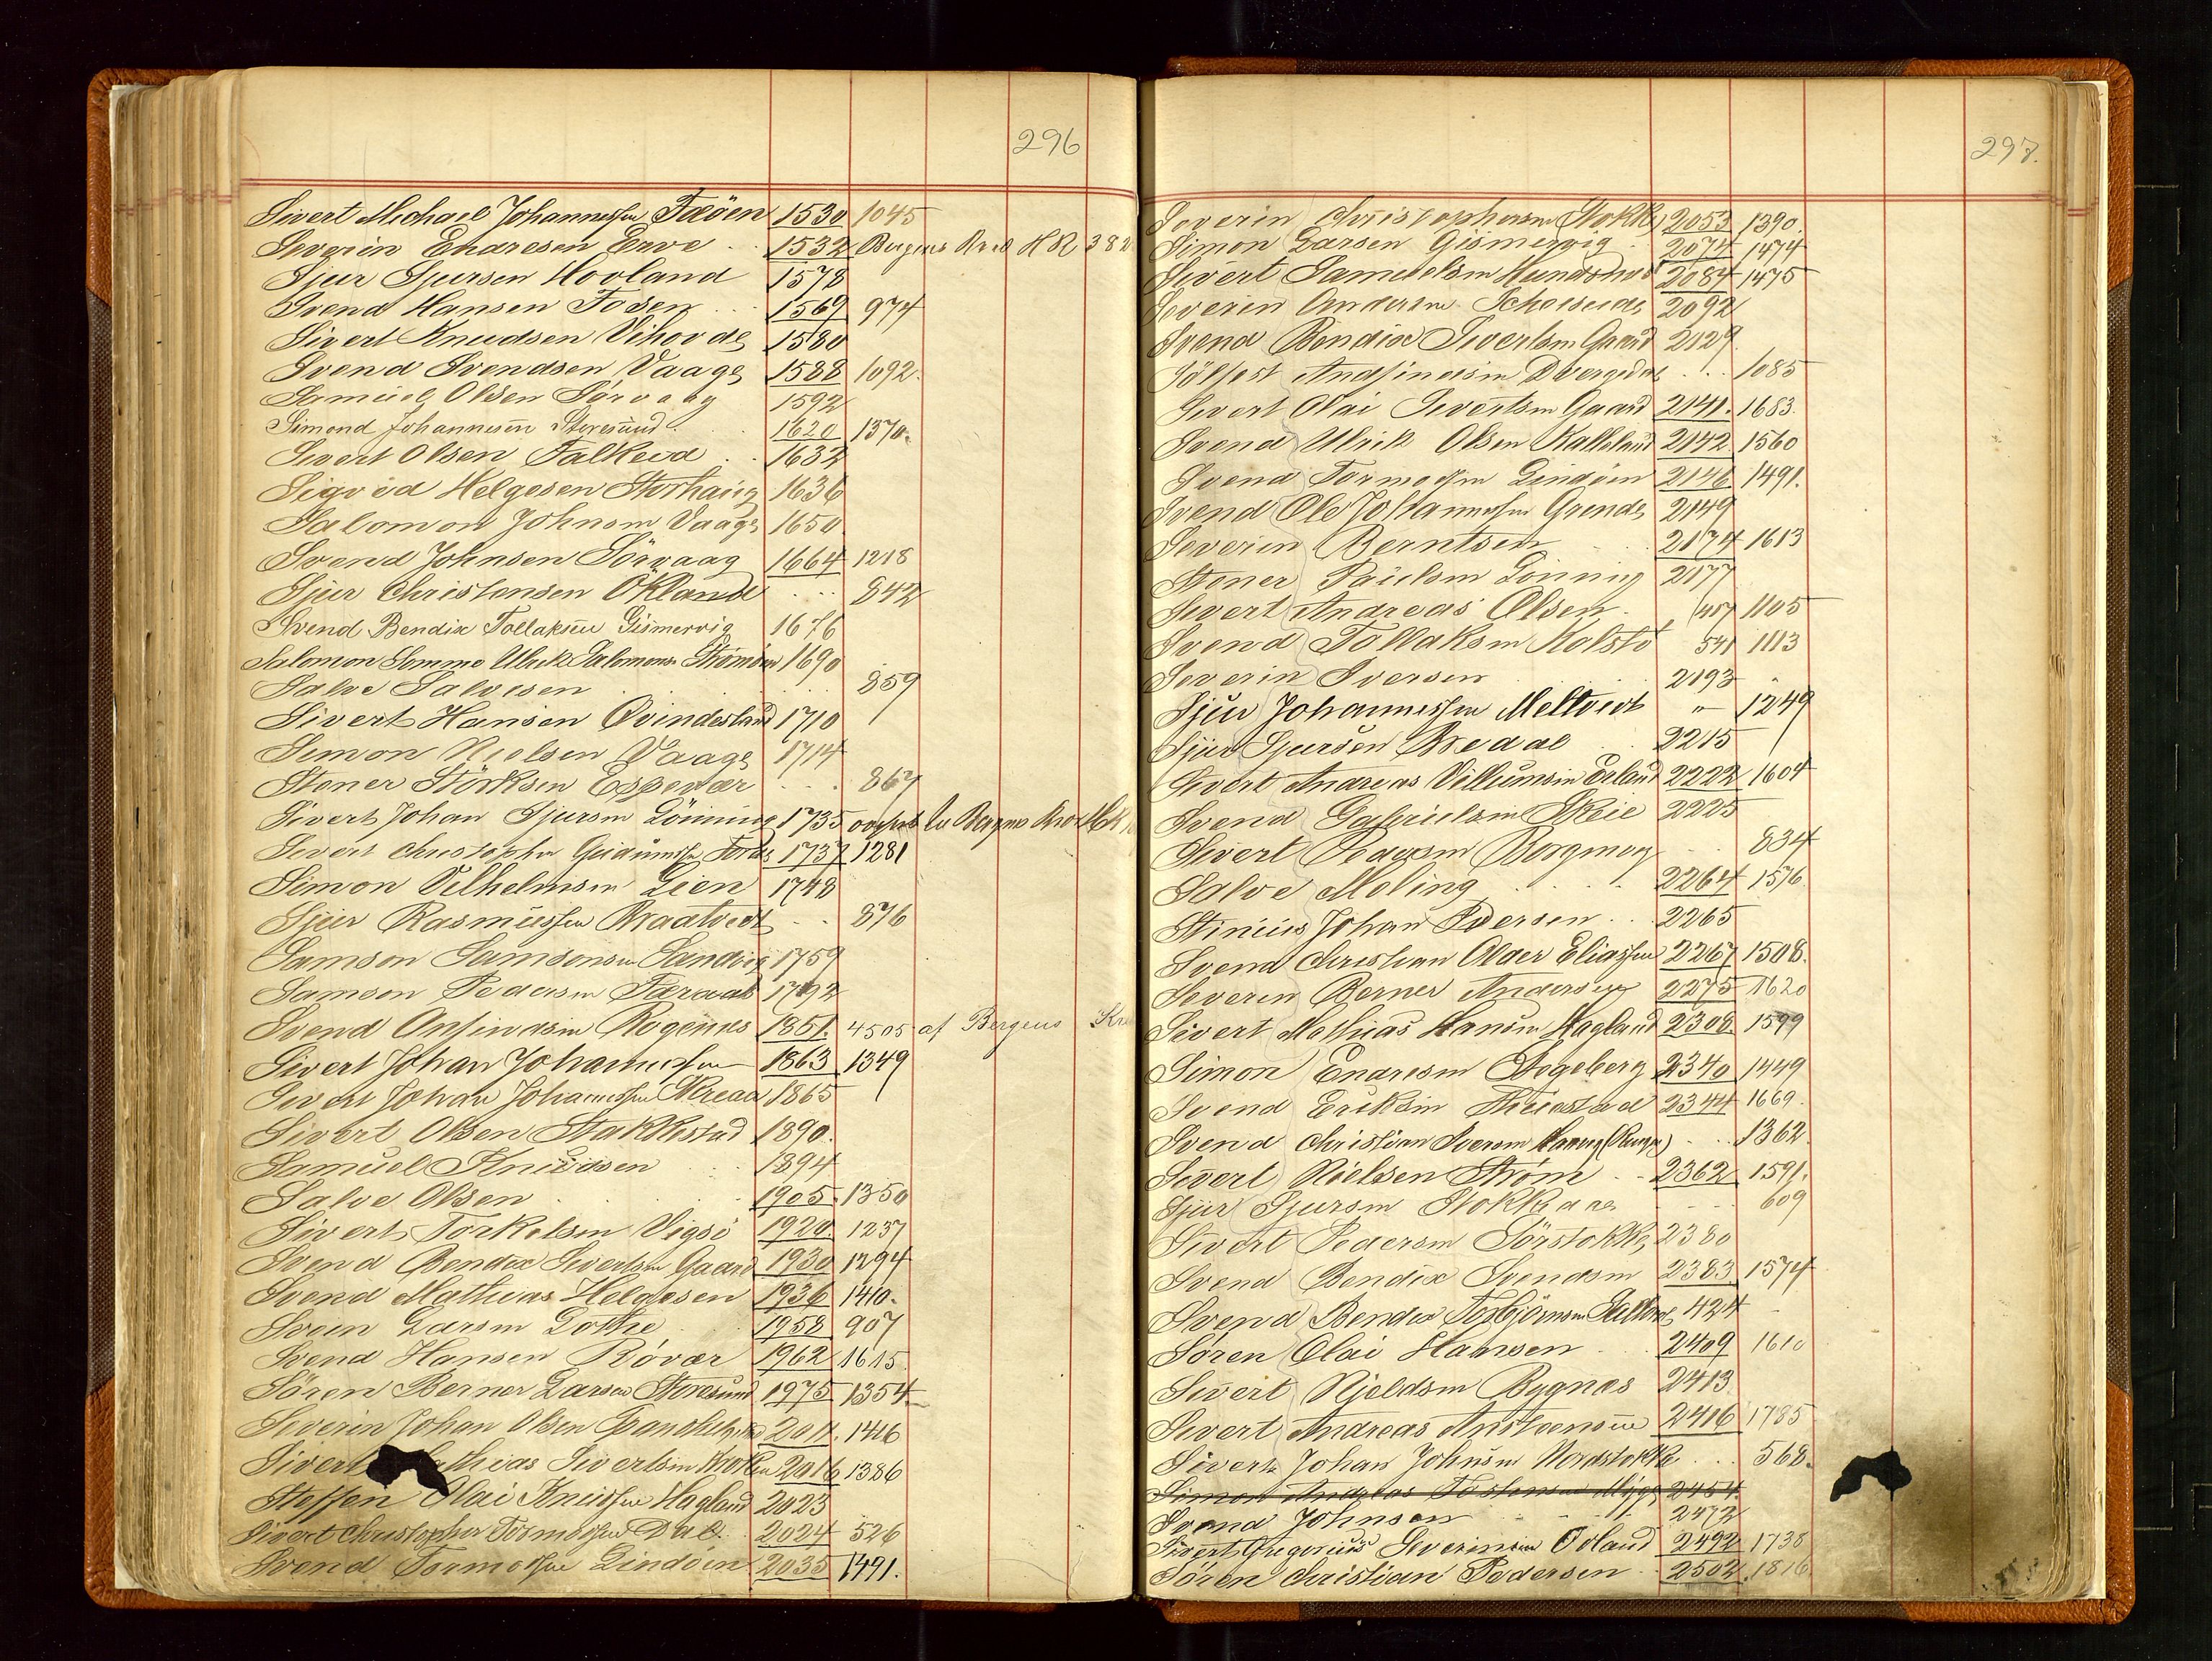 296
Sivert Michael Johannessen Fæøen 1530 1045
Severin Endresen Erve 1532 Bergens Kreds HR 382
Sjur Sjursen Hovland 1578
Svend Hansen Fosen 1569 974
Sivert Knudsen Vihovde 1580
Svend Svendsen Vaage 1588 1092.
Samuel Olsen Sørvaag 1592
Simond Johannesen Storesund 1620 1370.
Sivert Olsen Falkeid 1632
Sigvid Helgesen Storhaug 1636
Salomon Johnsen Vaage 1650
Svend Johnsen Sörvaag 1664 1218
Sjur ChristensenÖkland 842
Svend Bendix Tollaksen Gismervig 1676
Salomon Somme Ulrik Salomons Strömöen 1690
Salve Salvesen 859
Sivert Hansen Qvindesland 1710
Simon Nielsen Vaage 1714
Stener Störksen Espevær 867
Sivert Johan Sjursen Lönning 1735 Bergens
Sivert Christopher Gudmunds. Fordes 1737 1281
Simon Vilhelmsen Lien 1748
Sjur Rasmussen Braatvedt 876
Samson Samsonsen Sandvig 1759
Samson Pedersen Færaas 1792
Svend Anfindsen Rogenæs 1851. 4505 af Bergens Kre
Sivert Johan Johannessen 1863 1349
Sivert Johan Johannessen Skreaa 1865
Sivert Olsen Stakkestad 1890.
Samuel Knudsen 1894
Salve Olsen 1905. 1350
Sivert Torkelsen Vigsö 1920. 1237
Svend Bendix Sivertsen Gaard 1930 1294
Svend Mathias Helgesen 1936 1410.
Svein Larsen Lothe 1958 907
Svend Hansen Rövær 1962 1615
Sören Berner Larsen Storesund 1975 1354
Severin Johan Olsen 2011. 1416
Sivert Mathias Sivertsen Kroken 2016 1386
Steffen Olai Knudsen Hagland 2023
Sivert Christopher Tormodsen Dale 2024 526
Svend Tormodsen Lindöen 2035 1491.
297.
Severin Christophersen Stokke 2053 1390.
Simon Larsen Gismervig 2074 1474
Sivert Samuelsen 2084 1475
Severin Andersen 2092
Svend Bendix Sivertsen Gaard 2129
Sölfest Andfindsen Dvergedal 1085
Sivert Olai Sivertsen Gaard 2141. 1683.
Svend Ulrik Olsen Kalleland 2142 1560
Svend Tormodsen Lindöen 2146 1491.
Svend Ole Johannessen Grinde 2149
Severin Berntsen 2174 1613
Stener Paulsen Lönning 2177
Sivert Andreas Olsen 457 1105
Svend Tollaksen Kolstö 541 1113
Severin Iversen 2193
Sjur Johannessen Meltvedt " 1249
Sjur Sjursen Bredal 2215
Sivert Andreas Villumsen Erland 2222 1604
Svend Gabrielsen Skeie 2225
Sivert Pedersen Borgmoy 834
Salve Meling 2264 1576
Stinius Johan Pedersen 2265
Svend Christian Older Eliassen 2267 1508.
Severin Berner Andersen 2275 1620
Sivert Mathias Hansen Hagland 2308 1599
Simon Endresen Stegeberg 2340 1449
Svend Eriksen 2344 1669.
Svend Christian Iversen 1362
Sivert Nielsen Ström 2362 1591.
Sjur Sjursen Stokkenes 609
Sivert Pedersen Sörstokke 2380
Svend Bendix Svendsen 2383 1574
Svend Bendix Torbjörnsen 424
Sören Olai Hansen 2409 1610
Sivert Kjeldsen Bygnes 2413
Sivert Andreas Anstensen 2416 1785
Sivert Johan Johnsen Nordstokke 568.
Simon Andreas Mýge 2454
Svend Johnsen 2472
Sivert Gregorius Severinsen Ovland 2492 1738
Sören Christian Pedersen 2502. 1816